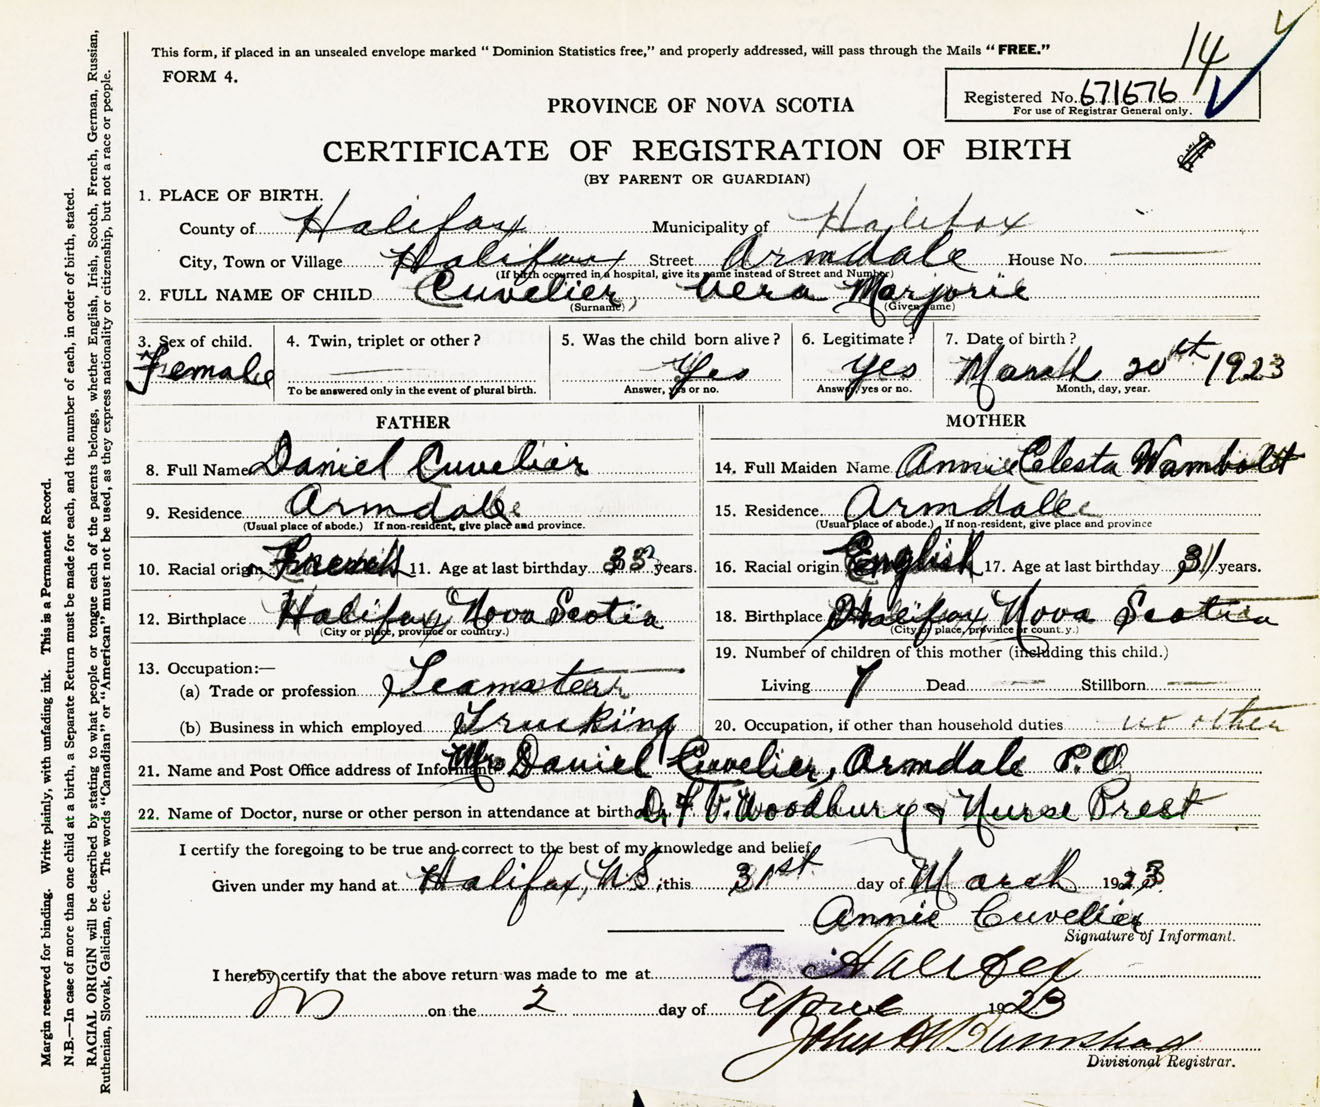 This form, if placed in an unsealed envelope marked "Dominion Statistics free," and properly addressed, will pass through the Mails "FREE."
14
FORM 4.
Registered No. 671676
For use of Registrar General only.
PROVINCE OF NOVA SCOTIA
CERTIFICATE OF REGISTRATION OF BIRTH
(BY PARENT OR GUARDIAN)
1. PLACE OF BIRTH.
County of Halifax Municipality of Halifax
City, Town or Village Halifax Street Armdale House No.
(If birth occurred in a hospital, give its name instead of Street and Number)
2. FULL NAME OF CHILD Cuvelier, Vera Marjorie
(Surname) (Given name)
3. Sex of child. 4. Twin, triplet or other? 5. Was the child born alive? 6. Legitimate? 7. Date of birth?
Female Yes Yes March 20th 1923
To be answered only in the event of plural birth. Answer, yes or no. Answer, yes or no. Month, day, year.
FATHER MOTHER
8. Full Name Daniel Cuvelier 14. Full Maiden Name Annie Celesta Wamboldt
9. Residence Armdale 15. Residence Armdale
(Usual place of abode.) If non-resident, give place and province. (Usual place of abode.) If non-resident, give place and province
10. Racial origin French 11. Age at last birthday 33 years. 16. Racial origin English 17. Age at last birthday 31 years.
12. Birthplace Halifax, Nova Scotia 18. Birthplace Halifax Nova Scotia
(City or place, province or country.) (City or place, province or country.)
13. Occupation:— 19. Number of children of this mother (including this child.)
(a) Trade or profession Teamster Living 7 Dead Stillborn
(b) Business in which employed Trucking 20. Occupation, if other than household duties no other
21. Name and Post Office address of Informant Mrs Daniel Cuvelier, Armdale P.O.
22. Name of Doctor, nurse or other person in attendance at birth D. F. V. Woodbury & Nurse Prest
I certify the foregoing to be true and correct to the best of my knowledge and belief,
Given under my hand at Halifax, N.S. this 31st day of March 1923
Annie Cuvelier
Signature of Informant.
I hereby certify that the above return was made to me at Halifax
on the 2 day of April 1923
Divisional Registrar.
Margin reserved for binding. Write plainly, with unfading ink. This is a Permanent Record.
N.B.—In case of more than one child at a birth, a Separate Return must be made for each, and the number of each, in order of birth, stated.
RACIAL ORIGIN will be described by stating to what people or tongue each of the parents belongs, whether English, Irish, Scotch, French, German, Russian,
Ruthenian, Slovak, Galician, etc. The words "Canadian" or "American" must not be used, as they express nationality or citizenship, but not a race or people.